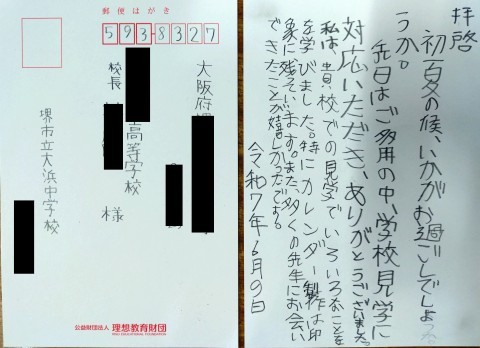 郵便はがき
593-8327
大阪府堺
高等学校
校長
様
堺市立大浜中学校
公益財団法人 理想教育財団
RISO EDUCATIONAL FOUNDATION
拝啓
初夏の候、いかがお過ごしでしょ
うか。
先日はご多用の中、学校見学に
対応いただき、ありがとうございました。
私は、貴校での見学でいろいろなことを
を学びました。特にカレンダー製作は印
象に残っています。また、多くの先生にお会い
できたことが嬉しかったです。
令和7年6月9日